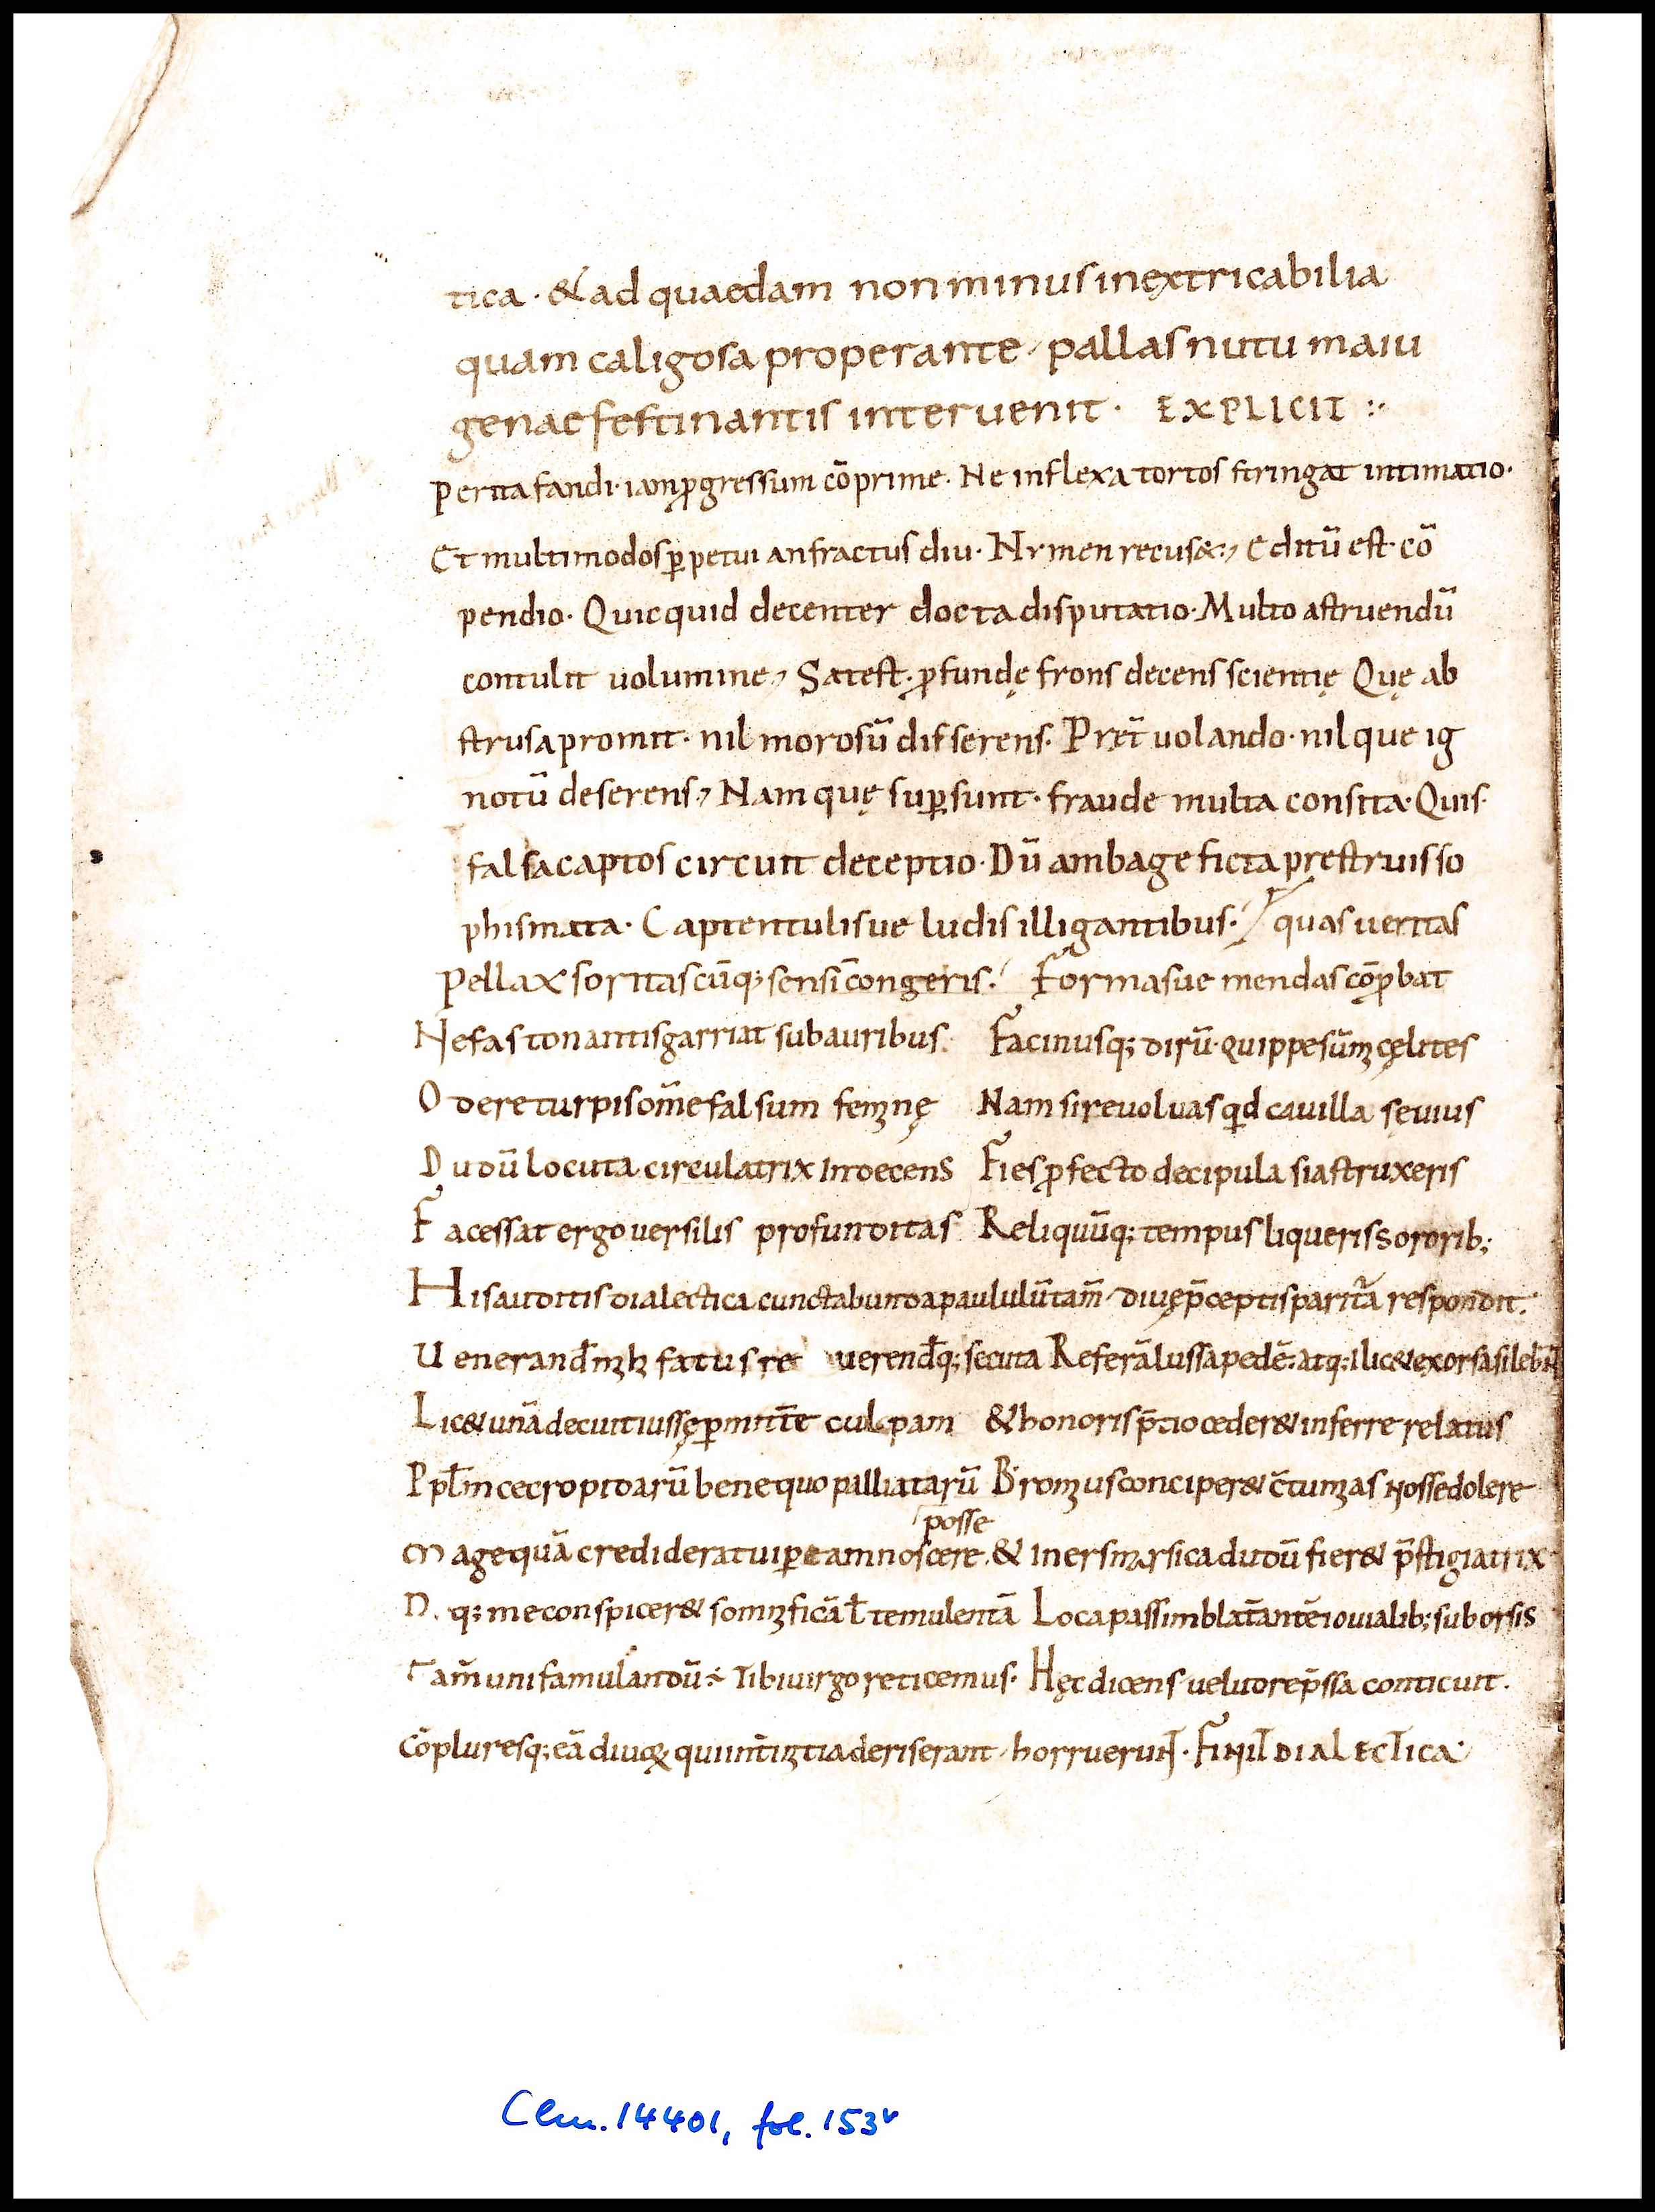 tica · & ad quaedam non minus inextricabilia
quam caligosa properante / pallas nutu maiu
genae festinantis interuenit · EXPLICIT :·
Perita fandi · iam ꝓgressum cōprime · Ne inflexa tortos stringat intimatio ·
Et multimodos ꝑpetui anfractus diu · Hymen recus& ·, Editū est · cō
pendio · Quicquid decenter docta disputatio · Multo astruendū
contulit uolumine, Sat est · ꝓfundę frons decens scientię Quę ab
strusa promit · nil morosū differens · Pręt̄ uolando · nilque ig
notū deserens, Nam quę suꝑsunt · fraude multa consita · Quis ·
falsa captos circuit deceptio · Dū ambage ficta prestruis so
phismata · Captentulisue ludis illigantibus · / quas ueritas
Pellax soritas cūq; sensī congeris · Formasue mendas cōꝓbat
Nefas tonantis garriat sub auribus · Facinusq; dirū · quippe sūm cęlites
Odere turpis om̄e falsum femnę Nam si reuoluas qd cauilla sęuius
Dudū locuta circulatrix indecens Fies ꝓfecto decipula si astruxeris
Facessat ergo uersilis profunditas Reliquūq; tempus liqueris sororib;
His auditis dialectica cunctabunda paululū tam̄ / diuę p̄ceptis parit̄a respondit ·
Uenerand fatus re uerendq; secuta Referā lussa pedē : atq; ilic& exorsa sileb
Lic& unā decuit iussę ꝑmittē culpam & honoris p̄tio ceder& inferre relatus
Ppłm cecropidarū bene quo palliatarū Bromus conciper& c̄tumas nosse dolere
posse
Mage quā crediderat uiꝑeam noscere · & iners marsica dudū fier& p̄stigiatrix
D · q; me conspicer& somficā ł temulentā Loca passim blat̄antē iouialib; sub orsis
Tam̄ uni famulandū ÷ tibi uirgo reticemus · Hęc dicens uelut dep̄ssa conticuit ·
Cōpluresq; eā diuoꝝ qui int̄ initia deriserant / horruerunt · FINIT DIALECTICA
Clm. 14401, fol. 153v